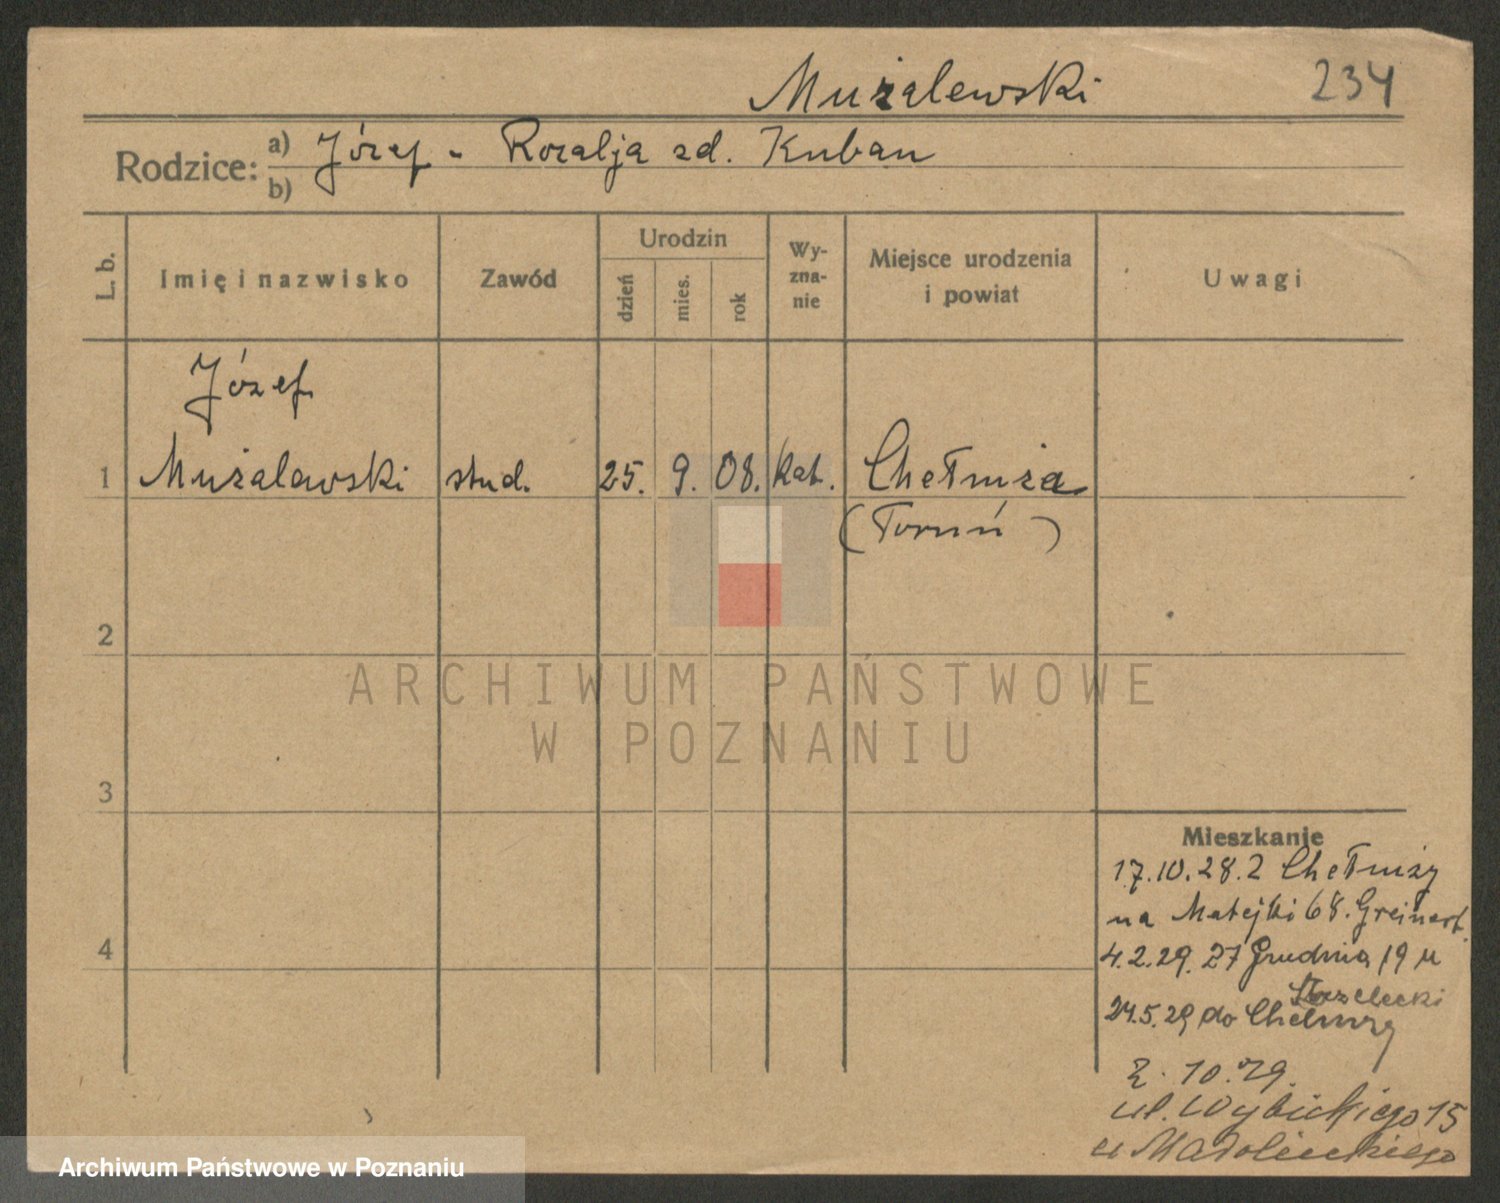 Mużalewski 234
Rodzice: a) Józef - Rozalja zd. Kuban
b)
L. b. Imię i nazwisko Zawód Urodzin dzień mies. rok Wy-zna-nie Miejsce urodzenia i powiat Uwagi
Józef
1 Mużalewski stud. 25. 9. 08. kat. Chełmża
(Toruń)
2
ARCHIWUM PAŃSTWOWE
W POZNANIU
3
Mieszkanie
17.10.28. z Chełmży
na Matejki 68. Greinert.
4
4.2.29. 27 Grudnia 19 u
Strzelecki
24.5.29 do Chełmży
2. 10. 29.
ul. Wybickiego 15
u
Archiwum Państwowe w Poznaniu